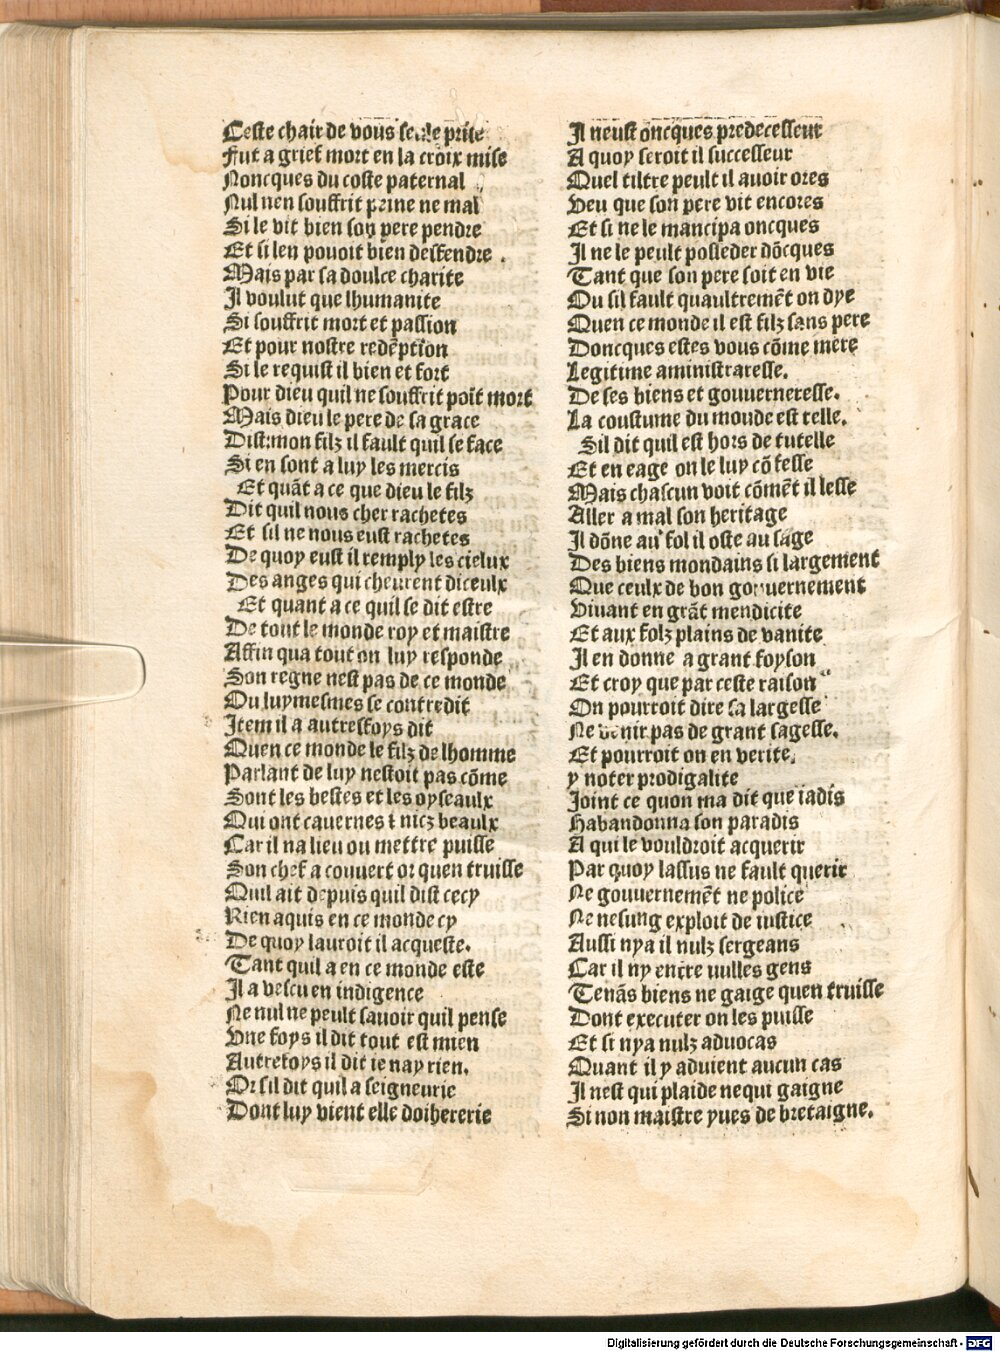 Ceste chair de vous seule prise
Fut a grief mort en la croix mise
Noncques du coste paternal
Nul nen souffrit peine ne mal
Si le vit bien son pere pendre
Et si len pouoit bien deffendre .
Mais par sa doulce charite
Il voulut que lhumanite
Si souffrit mort et passion
Et pour nostre redẽption
Si le requist il bien et fort
Pour dieu quil ne souffrit poĩt mort
Mais dieu le pere de sa grace
Dist:mon filz il fault quil se face
Si en sont a luy les mercis
Et quãt a ce que dieu le filz
Dit quil nous cher rachetes
Et sil ne nous eust rachetes
De quoy eust il remply les cieulx
Des anges qui cheurent diceulx
Et quant a ce quil se dit estre
De tout le monde roy et maistre
Affin qua tout on luy responde
Son regne nest pas de ce monde
Ou luymesmes se contredit
Item il a autresfoys dit
Quen ce monde le filz de lhomme
Parlant de luy nestoit pas cõme
Sont les bestes et les oyseaulx
Qui ont cauernes ⁊ nicz beaulx
Car il na lieu ou mettre puisse
Son chef a couuert or quen truisse
Quil ait depuis quil dist cecy
Rien aquis en ce monde cy
De quoy lauroit il acqueste.
Tant quil a en ce monde este
Il a vescu en indigence
Ne nul ne peult sauoir quil pense
Vne foys il dit tout est mien
Autrefoys il dit ie nay rien.
Or sil dit quil a seigneurie
Dont luy vient elle doihererie
Il neust oncques predecesseur
A quoy seroit il successeur
Quel tiltre peult il auoir ores
Veu que son pere vit encores
Et si ne le mancipa oncques
Il ne le peult posseder dõcques
Tant que son pere soit en vie
Ou sil fault quaultremẽt on dye
Quen ce monde il est filz sans pere
Doncques estes vous cõme mere
Legitime aministraresse.
De ses biens et gouuerneresse.
La coustume du monde est telle.
Sil dit quil est hors de tutelle
Et en eage on le luy cõfesse
Mais chascun voit cõmẽt il lesse
Aller a mal son heritage
Il dõne au fol il oste au sage
Des biens mondains si largement
Que ceulx de bon gouuernement
Viuant en grãt mendicite
Et aux folz plains de vanite
Il en donne a grant foyson
Et croy que par ceste raison
On pourroit dire sa largesse
Ne venir pas de grant sagesse.
Et pourroit on en verite.
y noter prodigalite
Joint ce quon ma dit que iadis
Habandonna son paradis
A qui le vouldroit acquerir
Par quoy lassus ne fault querir
Ne gouuernemẽt ne police
Ne nesung exploit de iustice
Aussi nya il nulz sergeans
Car il ny entre nulles gens
Tenãs biens ne gaige quen truisse
Dont executer on les puisse
Et si nya nulz aduocas
Quant il y aduient aucun cas
Il nest qui plaide nequi gaigne
Si non maistre yues de bretaigne.
Digitalisierung gefördert durch die Deutsche Forschungsgemeinschaft - DFG